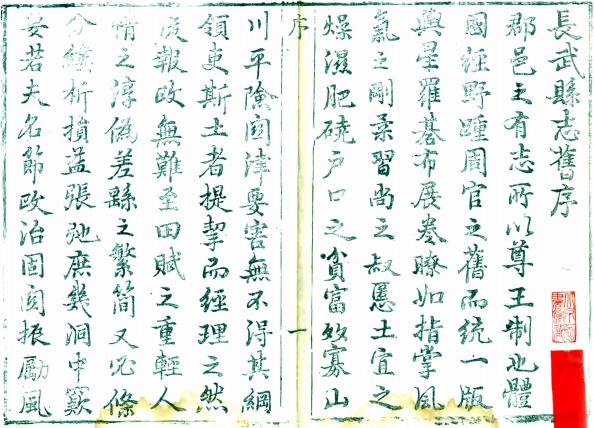 長武縣志舊序
郡邑之有志所以尊王制也體
國經野踵周官之舊而統一版
輿星羅碁布展卷瞭如指掌風
氣之剛柔習尚之叔慝土宜之
燥濕肥磽戶口之貧富寡山
序
一
川平險関津要害無不得其綱
領吏斯土者提挈而經理之然
後報政無難至田賦之重輕人
情之淳偽差繇之繁簡又必條
分縷析損益張弛庶幾澗中窾
要若夫名節政治固関振勵風